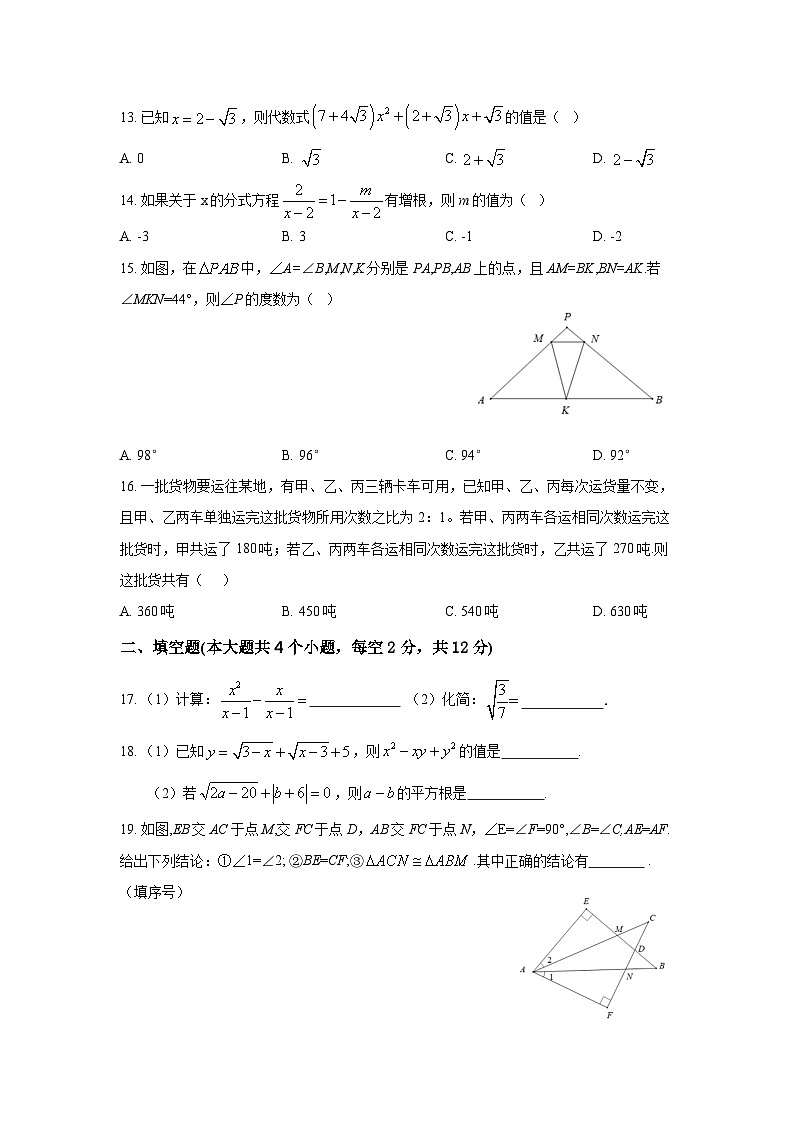 13. 已知 x = 2 − √3，则代数式 (7 + 4√3)x² + (2 + √3)x + √3 的值是（ ）
A. 0 B. √3 C. 2 + √3 D. 2 − √3
14. 如果关于 x 的分式方程 2/(x−2) = 1 − m/(x−2) 有增根，则 m 的值为（ ）
A. -3 B. 3 C. -1 D. -2
15. 如图，在 ΔPAB 中，∠A=∠B,M,N,K 分别是 PA,PB,AB 上的点，且 AM=BK,BN=AK.若
∠MKN=44°，则∠P 的度数为（ ）
P
M N
A K B
A. 98° B. 96° C. 94° D. 92°
16. 一批货物要运往某地，有甲、乙、丙三辆卡车可用，已知甲、乙、丙每次运货量不变，
且甲、乙两车单独运完这批货物所用次数之比为 2：1。若甲、丙两车各运相同次数运完这
批货时，甲共运了 180 吨；若乙、丙两车各运相同次数运完这批货时，乙共运了 270 吨.则
这批货共有（ ）
A. 360 吨 B. 450 吨 C. 540 吨 D. 630 吨
二、填空题(本大题共 4 个小题，每空 2 分，共 12 分)
17.（1）计算：x²/(x−1) − x/(x−1) = ____________ （2）化简：√(3/7) = ___________.
18.（1）已知 y = √(3−x) + √(x−3) + 5，则 x² − xy + y² 的值是__________.
（2）若 √(2a−20) + |b+6| = 0，则 a − b 的平方根是__________.
19. 如图,EB 交 AC 于点 M,交 FC 于点 D，AB 交 FC 于点 N，∠E=∠F=90°,∠B=∠C,AE=AF.
给出下列结论：①∠1=∠2; ②BE=CF;③ΔACN≅ΔABM .其中正确的结论有_______ .
（填序号）
E
C
M
D
A 2 B
1 N
F